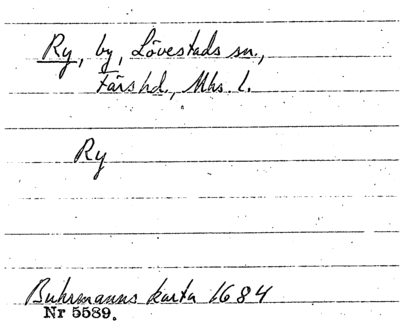 Ry, by, Lövestads sn.,
Färs hd., Mhs. l.
Ry
Buhrmanns karta 1684
Nr 5589.